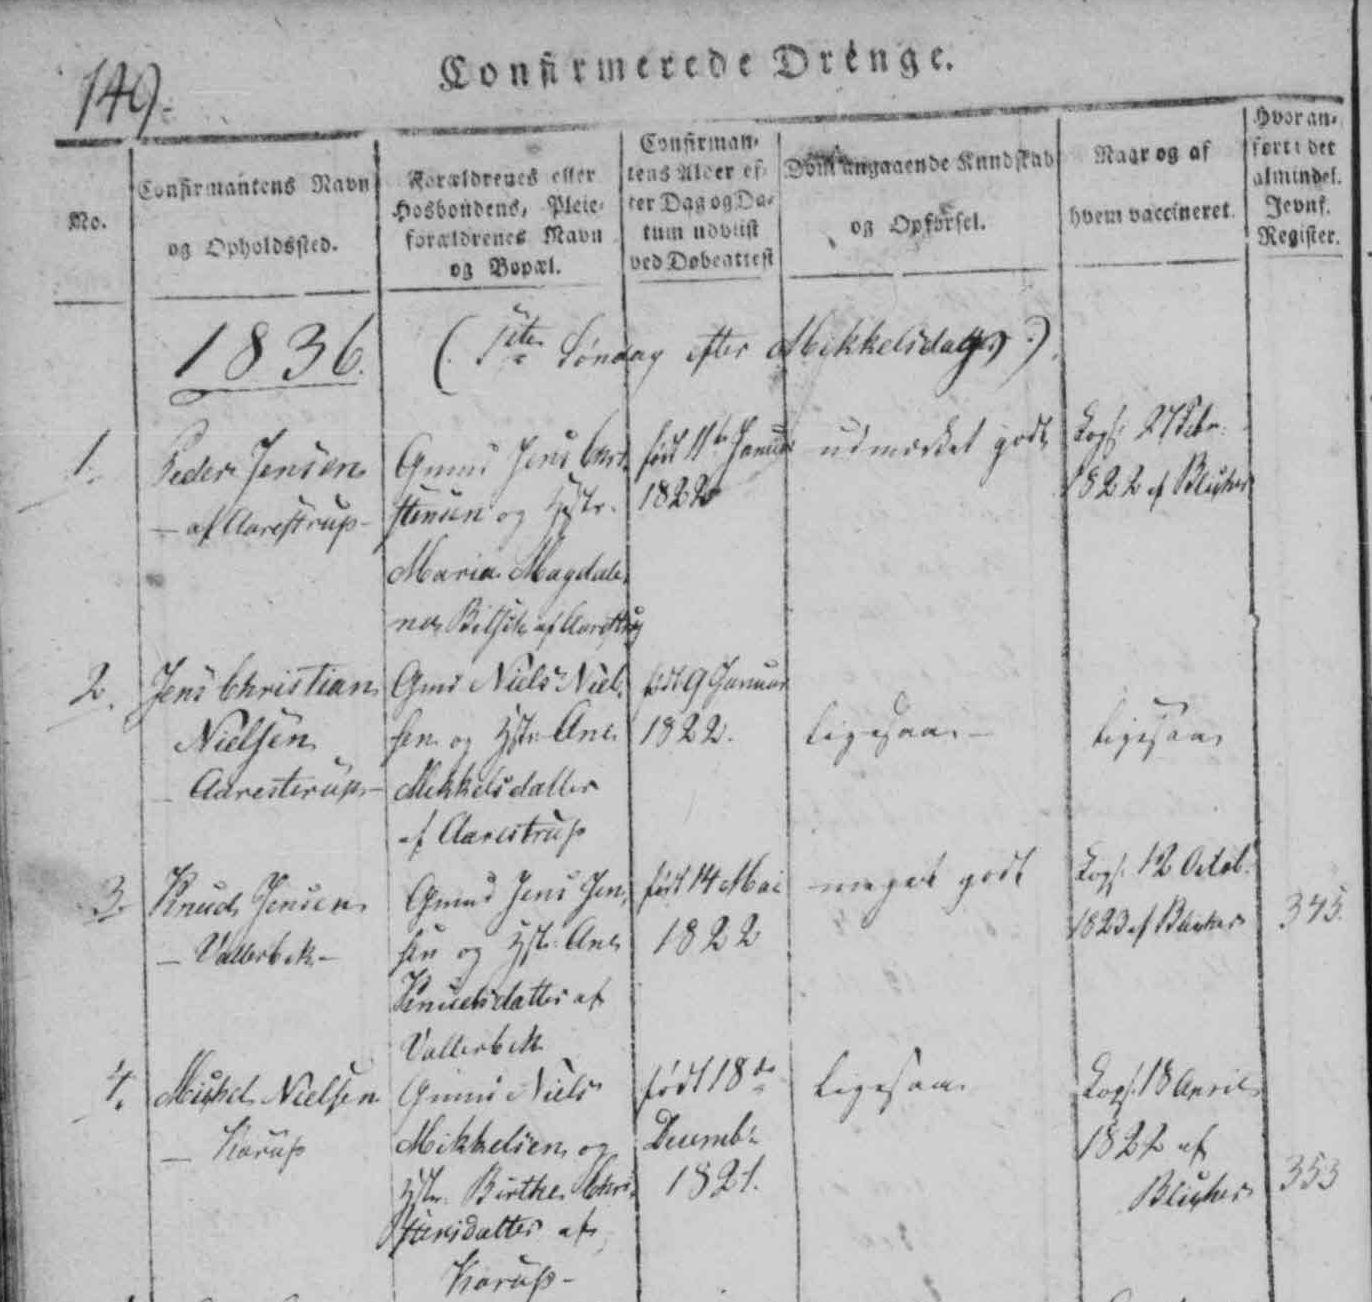 149.
Confirmerede Drenge.
No.
Confirmantens Navn
og Opholdssted.
Forældrenes eller
Hosbondens, Pleie-
forældrenes Navn
og Bopæl.
Confirman-
tens Alder ef-
ter Dag og Da-
tum udviist
ved Døbeattest
Dom angaaende Kundskab
og Opførsel.
Naar og af
hvem vaccineret.
Hvor an-
ført i det
almindel.
Jevnf.
Register.
1836.
Søndag efter Mikkelsdag
1.
Peder Jensen
- af Aarestrup -
Gmd Jens Chri-
stensen og Hstr.
Maria Magdale-
na af Aarestrup
født 11te Januar
1822
udmærket godt
Kop. 27 Febr.
1822 af Blicher
2.
Jens Christian
Nielsen
Aaresterup -
Gmd Niels Niel-
sen og Hstr. Ane
Mikkelsdatter
af Aarestrup
født 9 Januar
1822.
ligesaa -
ligesaa
3.
Knud Jensen
- Vallerbek -
Gmd Jens Jen-
sen og Hstr. Ane
Knudsdatter af
Vallerbek
født 14 Mai
1822
meget godt
Kop. 12 Octob.
1823 af Blicher
345.
4.
Michel Nielsen
- Korup
Gmd Niels
Mikkelsen og
Hstr. Birthe Chri-
stensdatter af
Korup -
født 18de
Decembr
1821.
ligesaa
Kop. 18 April
1822 af
Blicher
353